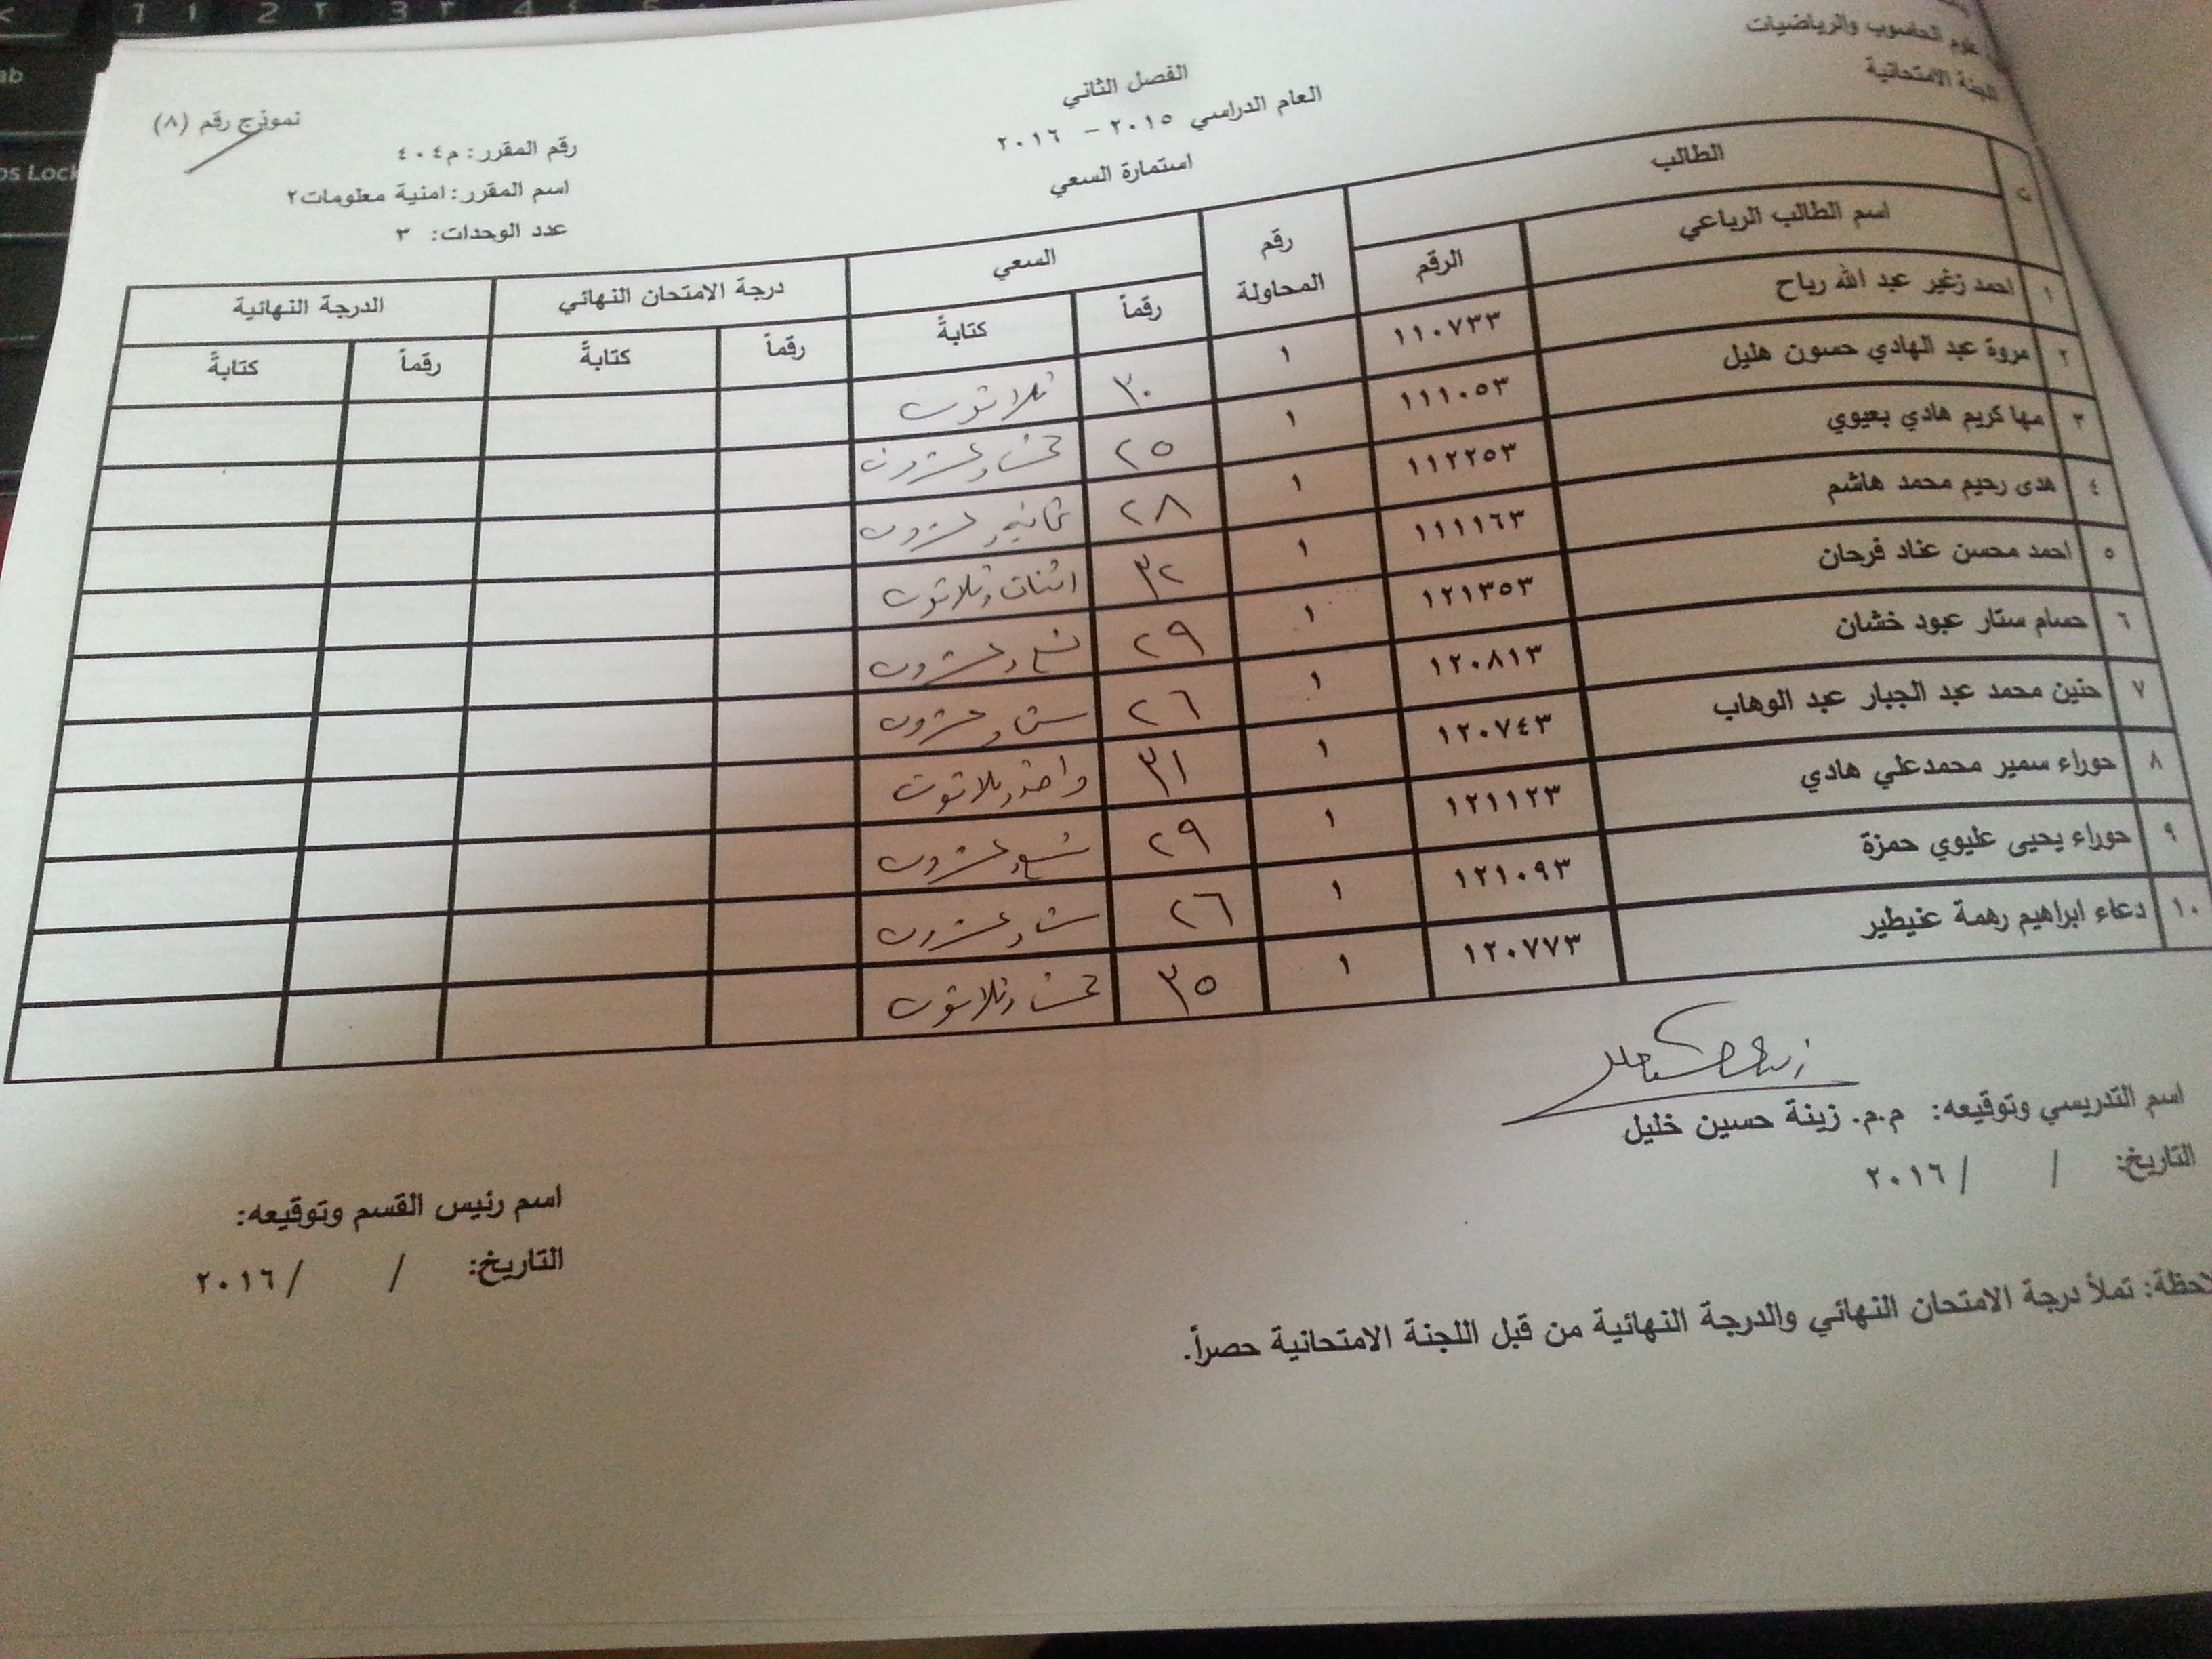 علوم الحاسوب والرياضيات
اللجنة الامتحانية
الفصل الثاني
العام الدراسي ٢٠١٥ – ٢٠١٦
استمارة السعي
نموذج رقم (٨)
رقم المقرر: م٤٠٤
اسم المقرر: امنية معلومات٢
عدد الوحدات: ٣
ت الطالب رقم المحاولة السعي درجة الامتحان النهائي الدرجة النهائية
اسم الطالب الرباعي الرقم رقماً كتابةً رقماً كتابةً رقماً كتابةً
١ احمد زغير عبد الله رباح ١١٠٧٣٣ ١ ٣٠ ثلاثون
٢ مروة عبد الهادي حسون هليل ١١١٠٥٣ ١ ٢٥ خمس وعشرون
٣ مها كريم هادي بعيوي ١١٢٢٥٣ ١ ٢٨ ثمانية وعشرون
٤ هدى رحيم محمد هاشم ١١١١٦٣ ١ ٣٢ اثنان وثلاثون
٥ احمد محسن عناد فرحان ١٢١٣٥٣ ١ ٢٩ تسع وعشرون
٦ حسام ستار عبود خشان ١٢٠٨١٣ ١ ٢٦ ست وعشرون
٧ حنين محمد عبد الجبار عبد الوهاب ١٢٠٧٤٣ ١ ٣١ واحد وثلاثون
٨ حوراء سمير محمدعلي هادي ١٢١١٢٣ ١ ٢٩ تسع وعشرون
٩ حوراء يحيى عليوي حمزة ١٢١٠٩٣ ١ ٢٦ ست وعشرون
١٠ دعاء ابراهيم رهمة عنيطير ١٢٠٧٧٣ ١ ٣٥ خمس وثلاثون
اسم التدريسي وتوقيعه: م.م. زينة حسين خليل
التاريخ: / /٢٠١٦
اسم رئيس القسم وتوقيعه:
التاريخ: / /٢٠١٦
لاحظة: تملأ درجة الامتحان النهائي والدرجة النهائية من قبل اللجنة الامتحانية حصراً.